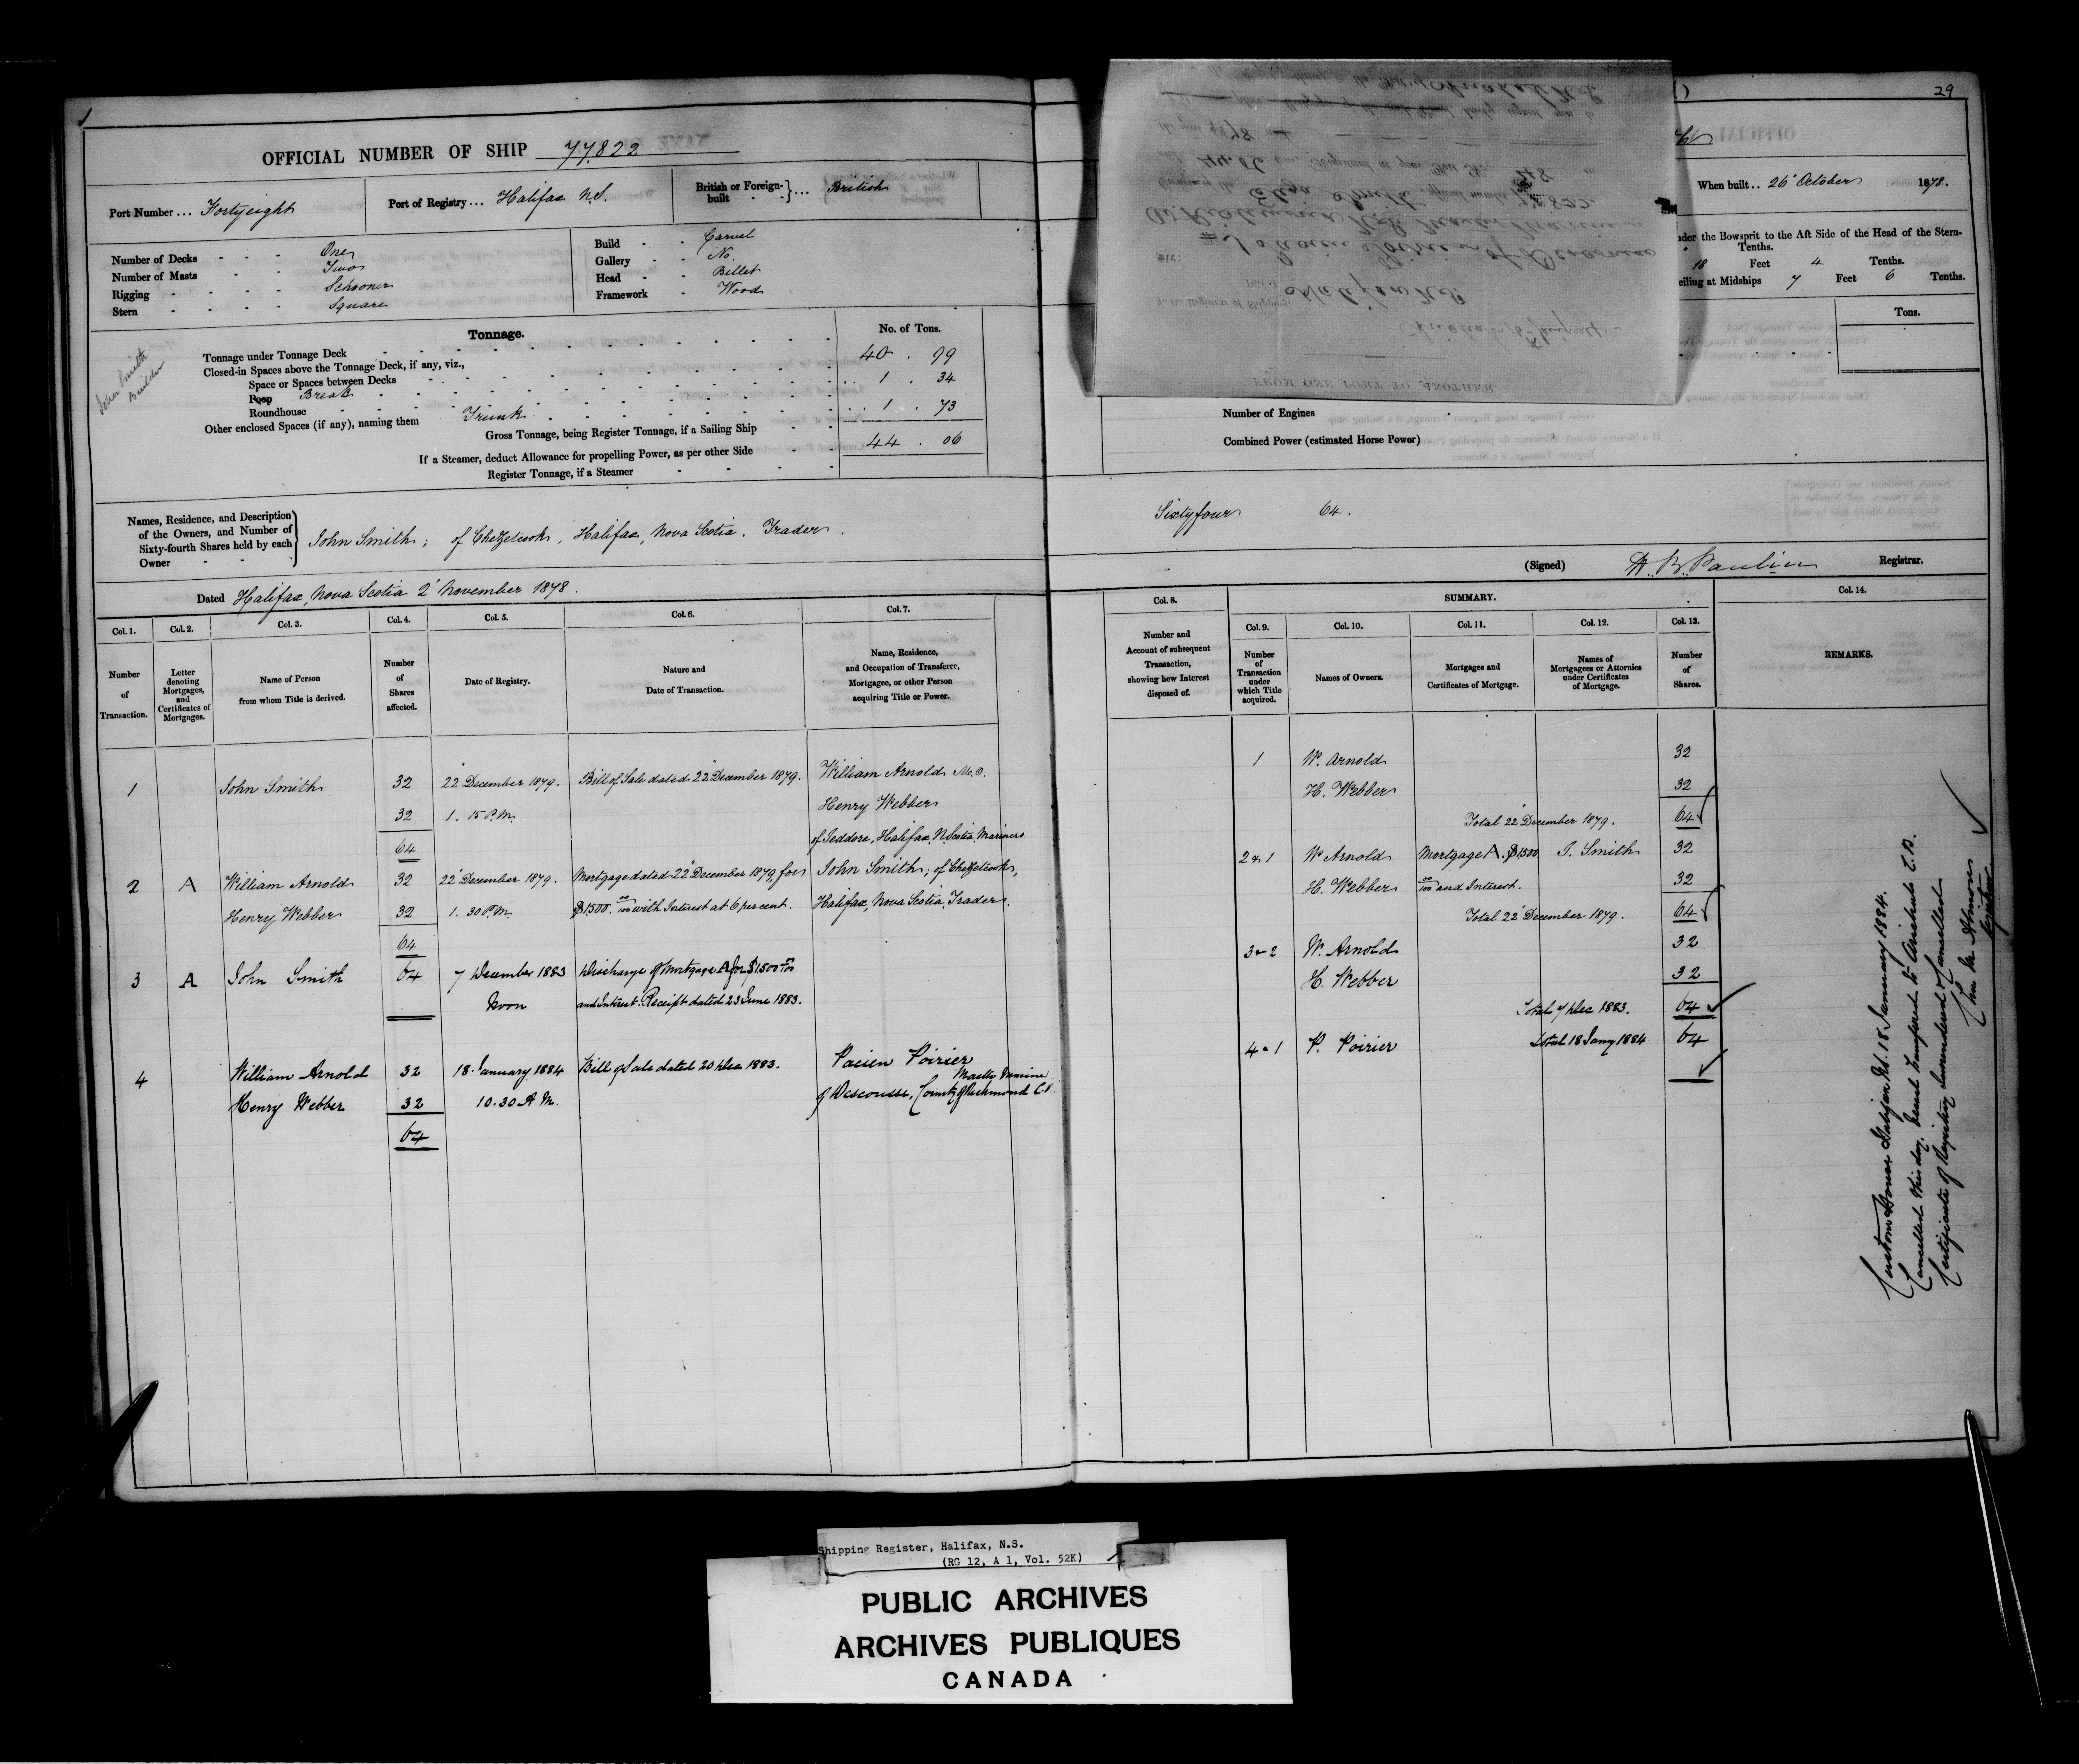 29
OFFICIAL NUMBER OF SHIP 77.822
Port Number ... Fortyeight
Port of Registry ... Halifax N.S.
British or Foreign-built ... British
When built .. 26' October 1878.
Number of Decks One
Number of Masts Two
Rigging Schooner
Stern Square
Build Carvel
Gallery No.
Head Billet
Framework Wood
nder the Bowsprit to the Aft Side of the Head of the Stern-
Tenths.
18 Feet 4 Tenths.
eiling at Midships 7 Feet 6 Tenths.
Tons.
Tonnage.
No. of Tons.
Tonnage under Tonnage Deck 40 . 99
Closed-in Spaces above the Tonnage Deck, if any, viz.,
Space or Spaces between Decks
Poop Break 1 . 34
Roundhouse
Other enclosed Spaces (if any), naming them Trunk 1 . 73
Gross Tonnage, being Register Tonnage, if a Sailing Ship 44 . 06
If a Steamer, deduct Allowance for propelling Power, as per other Side
Register Tonnage, if a Steamer
John Smith
Builder
FROM ONE PORT TO ANOTHER
Number of Engines
Combined Power (estimated Horse Power)
Names, Residence, and Description
of the Owners, and Number of
Sixty-fourth Shares held by each
Owner
John Smith; of Chezzetcook, Halifax, Nova Scotia. Trader.
Sixtyfour 64.
Dated Halifax, Nova Scotia 2' November 1878.
(Signed) Registrar.
Col. 1. Col. 2. Col. 3. Col. 4. Col. 5. Col. 6. Col. 7.
Number of Transaction.
Letter denoting Mortgages, and Certificates of Mortgages.
Name of Person from whom Title is derived.
Number of Shares affected.
Date of Registry.
Nature and Date of Transaction.
Name, Residence, and Occupation of Transferee, Mortgagee, or other Person acquiring Title or Power.
1 John Smith 32 22' December 1879. Bill of Sale dated 22' December 1879. William Arnold M.O.
32 1. 15 P.M. Henry Webber
64 of Jeddore, Halifax, N. Scotia Mariners
2 A William Arnold 32 22' December 1879. Mortgage dated 22' December 1879 for John Smith; of Chezzetcook,
Henry Webber 32 1. 30 P.M. $1500. 00/100 with Interest at 6 per cent. Halifax, Nova Scotia. Trader.
64
3 A John Smith 64 7 December 1883 Discharge of Mortgage A for $1500 00/100
Noon and Interest. Receipt dated 23 June 1883.
4 William Arnold 32 18 January 1884 Bill of Sale dated 20 Dec 1883. Pacien Poirier
Henry Webber 32 10.30 A.M. Master Mariner
of Descousse, County of Richmond C.B.
64
Col. 8. SUMMARY. Col. 14.
Col. 9. Col. 10. Col. 11. Col. 12. Col. 13.
Number and Account of subsequent Transaction, showing how Interest disposed of.
Number of Transaction under which Title acquired.
Names of Owners.
Mortgages and Certificates of Mortgage.
Names of Mortgagees or Attornies under Certificates of Mortgage.
Number of Shares.
REMARKS.
1 W. Arnold 32
H. Webber 32
Total 22' December 1879. 64
2 & 1 W. Arnold Mortgage A. $1500 J. Smith 32
H. Webber 00/100 and Interest. 32
Total 22' December 1879. 64
3 & 2 W. Arnold 32
H. Webber 32
Total 7 Dec 1883. 64
4 & 1 P. Poirier Total 18 Jany 1884 64
Custom House Halifax N.S. 18 January 1884.
Cancelled this day. Vessel transferred to Arichat C.B.
Certificate of Registry surrendered & Cancelled
Registrar
Shipping Register, Halifax, N.S.
(RG 12, A 1, Vol. 52K)
PUBLIC ARCHIVES
ARCHIVES PUBLIQUES
CANADA